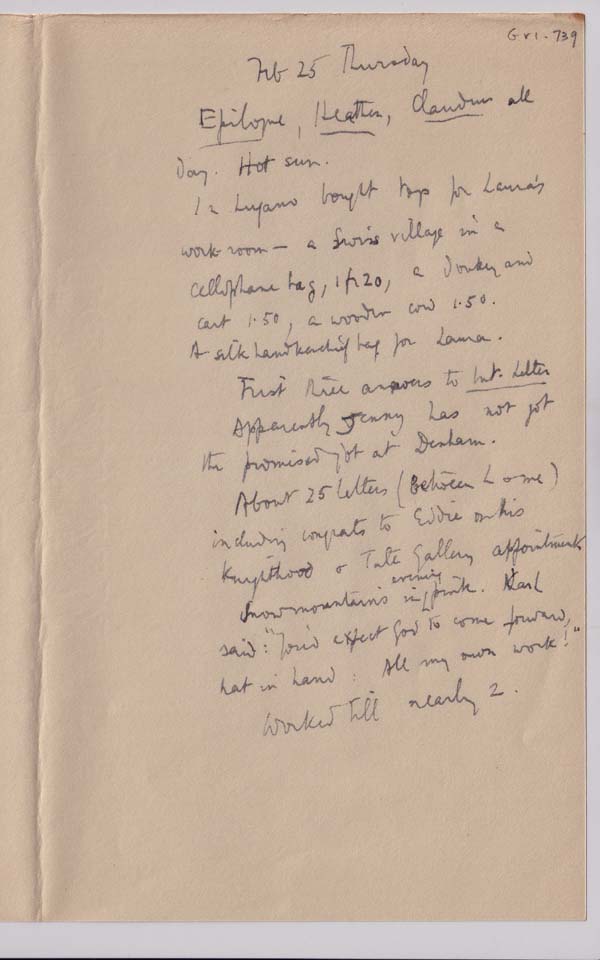 GV1-739
Feb 25 Thursday
Epilogue, Heathen, Claudius all
day. Hot sun.
In Lugano bought toys for Laura's
work-room — a Swiss village in a
cellophane bag, 1fr20, a donkey and
cart 1.50, a wooden cow 1.50.
A silk handkerchief bag for Laura.
First three answers to Int. Letter
Apparently Jenny has not got
the promised job at Denham.
About 25 letters (between L & me)
including congrats to Eddie on his
Knighthood & Tate Gallery appointment
Snowmountains in evening pink. Karl
said: "You'd expect God to come forward,
hat in hand: All my own work!"
Worked till nearly 2.